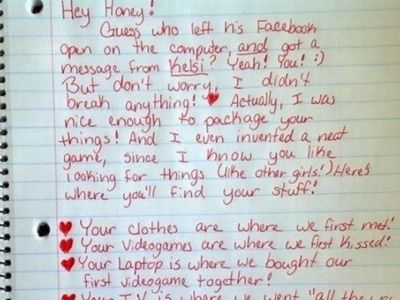 Hey Honey!
Guess who left his Facebook
open on the computer, and got a
message from Kelsi? Yeah! You! :)
But don't worry, I didn't
break anything! ♥ Actually, I was
nice enough to package your
things! And I even invented a neat
game, since I know you like
looking for things (like other girls!) Here's
where you'll find your stuff!
♥ Your clothes are where we first met!
♥ Your Videogames are where we first kissed!
♥ Your Laptop is where we bought our
first videogame together!
♥ Your T.V. is where we went "all the